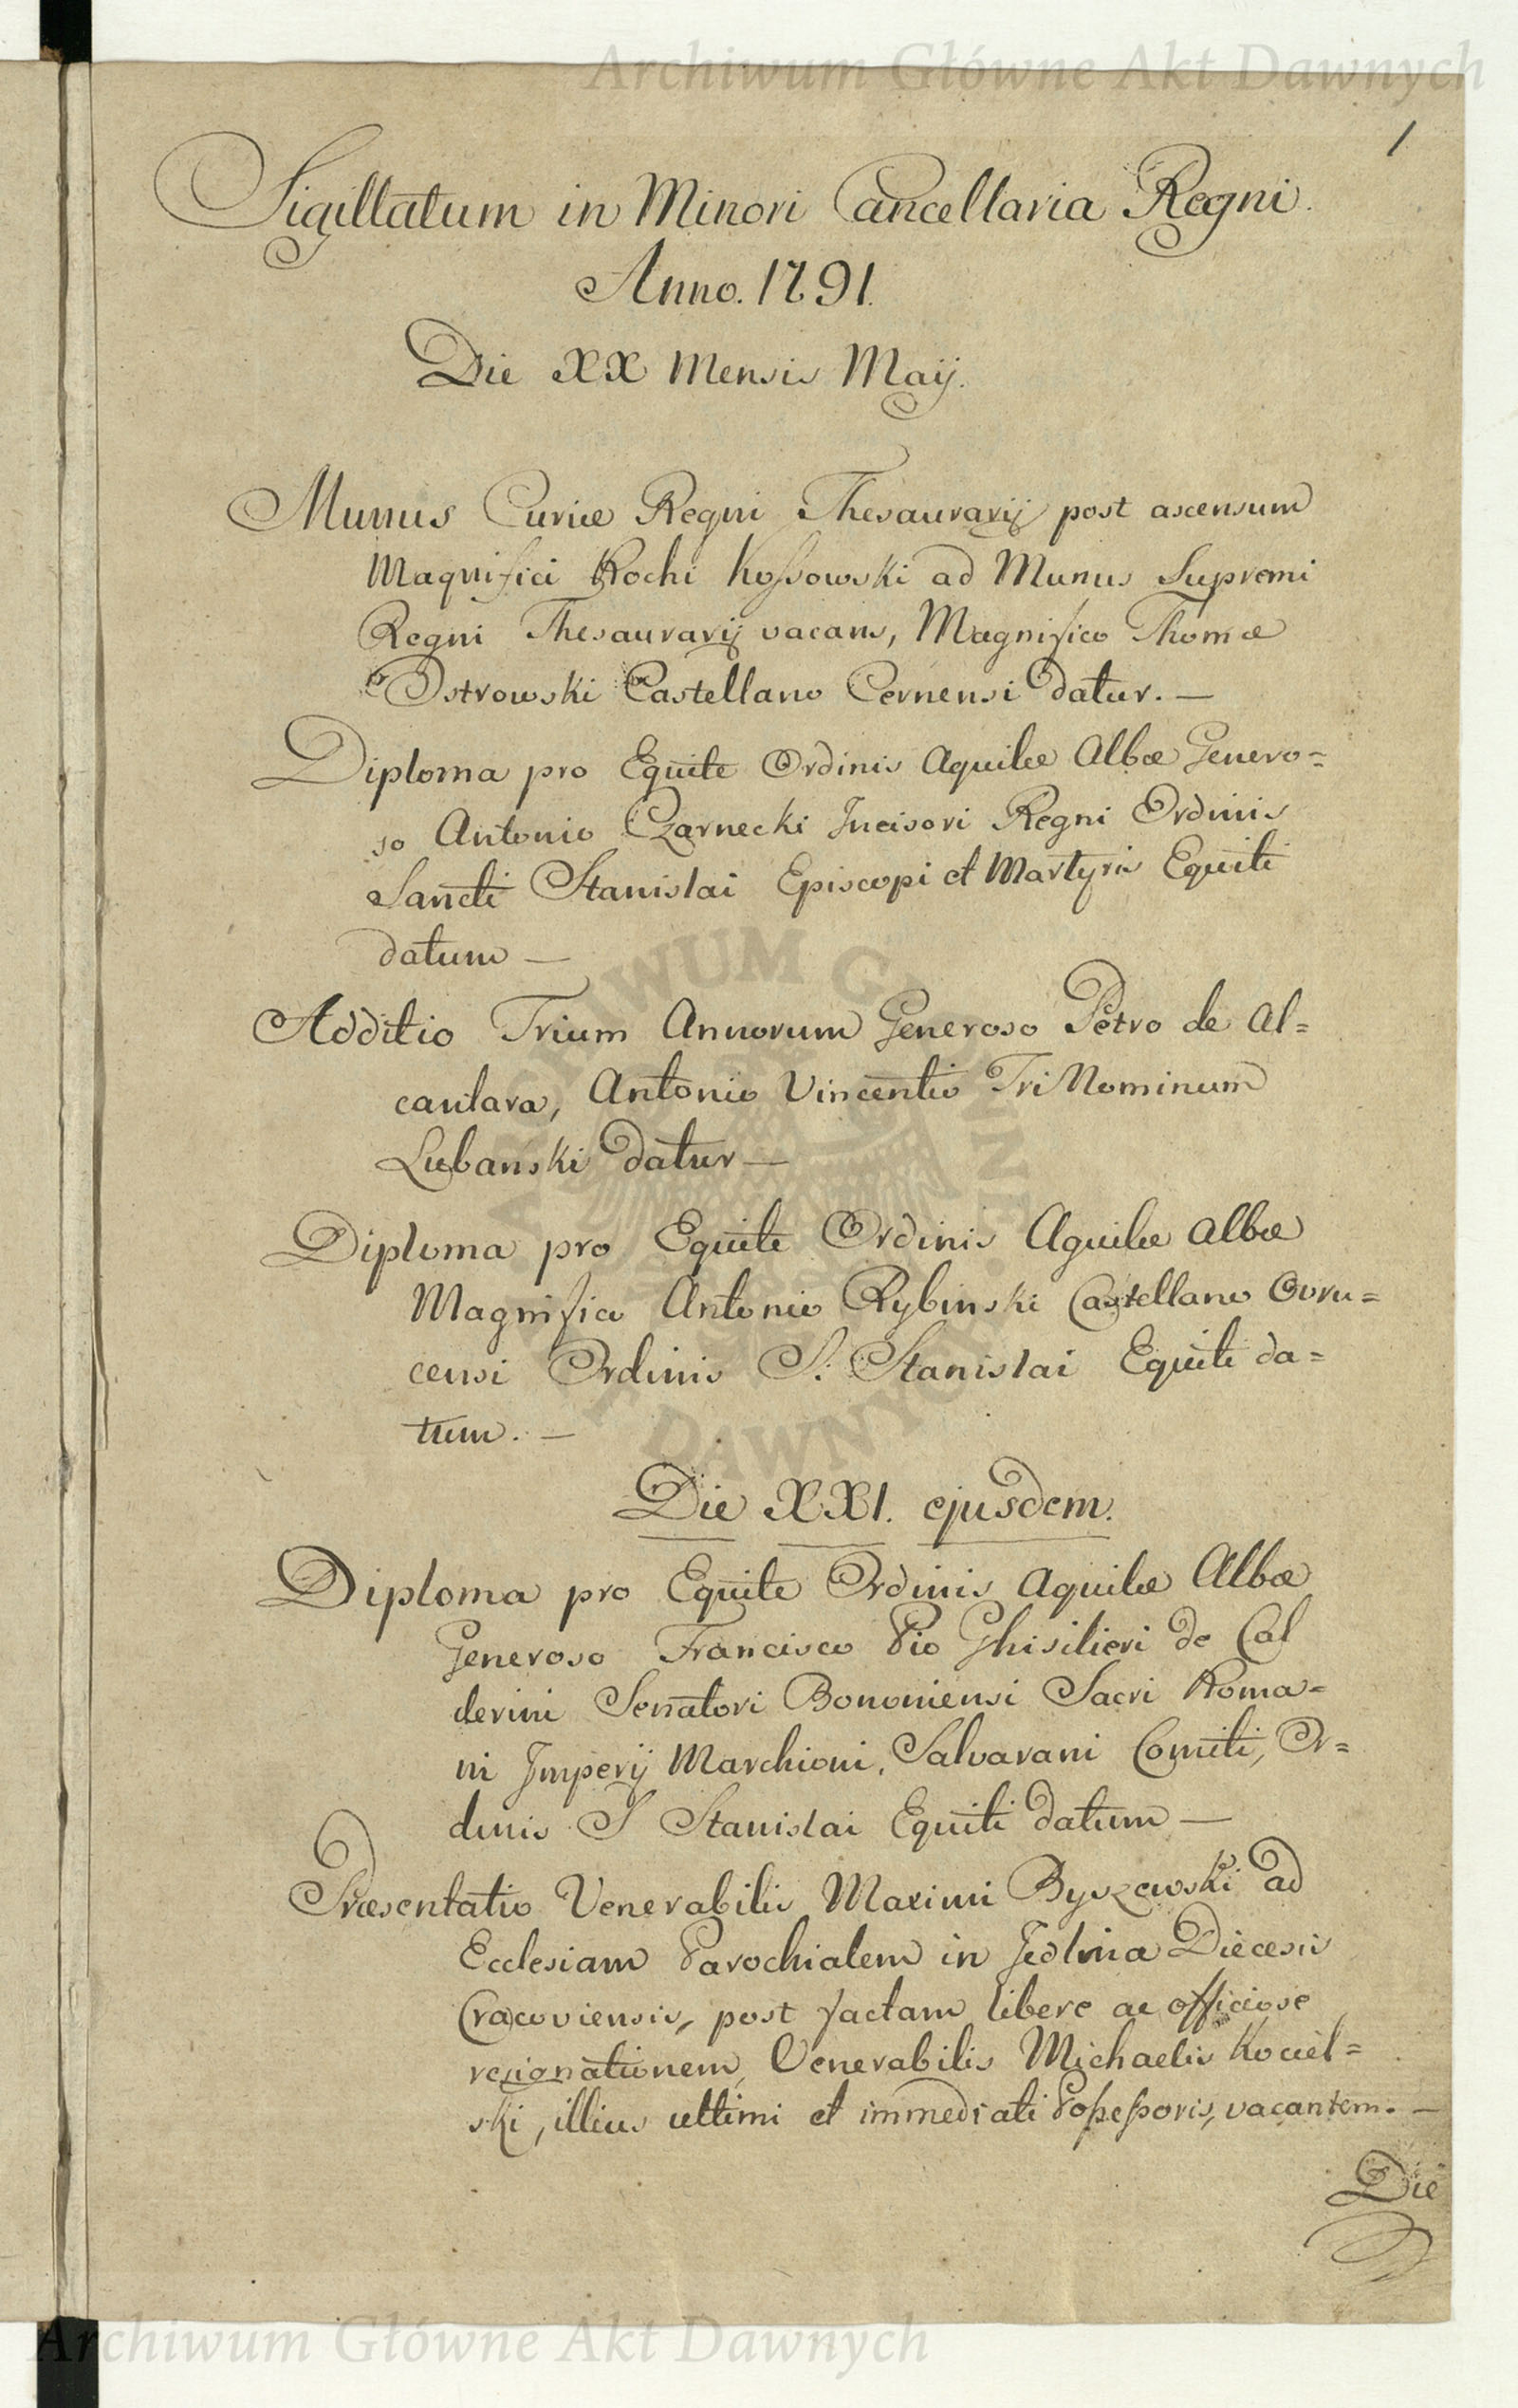 Archiwum Główne Akt Dawnych
1
Sigillatum in Minori Cancellaria Regni.
Anno. 1791.
Die XX Mensis Maij.
Munus Curiæ Regni Thesaurarij post ascensum
Magnifici Rochi Kossowski ad Munus Supremi
Regni Thesaurarij vacans, Magnifico Thomæ
Ostrowski Castellano Cernensi datur. —
Diploma pro Equite Ordinis Aquilæ Albæ Genero=
so Antonio Czarnecki Incisori Regni Ordinis
Sancti Stanislai Episcopi et Martyris Equiti
datum —
Additio Trium Annorum Generoso Petro de Al=
cantara, Antonio Vincentio Tri Nominum
Lubański datur —
Diploma pro Equite Ordinis Aquilæ Albæ
Magnifico Antonio Rybinski Castellano Ovru=
censi Ordinis S. Stanislai Equiti da=
tum. —
Die XXI. ejusdem.
Diploma pro Equite Ordinis Aquilæ Albæ
Generoso Francisco Pio Ghisilieri de Cal
derini Senatori Bononiensi Sacri Roma=
ni Imperij Marchioni, Salvarani Comiti, Or=
dinis S Stanislai Equiti datum —
Præsentatio Venerabilis Maximi Byszewski ad
Ecclesiam Parochialem in Jedlnia Diecesis
Cracoviensis, post factam libere ac officiose
resignationem, Venerabilis Michaelis Kociel=
ski, illius ultimi et immediati Possessoris, vacantem. —
Die
Archiwum Główne Akt Dawnych